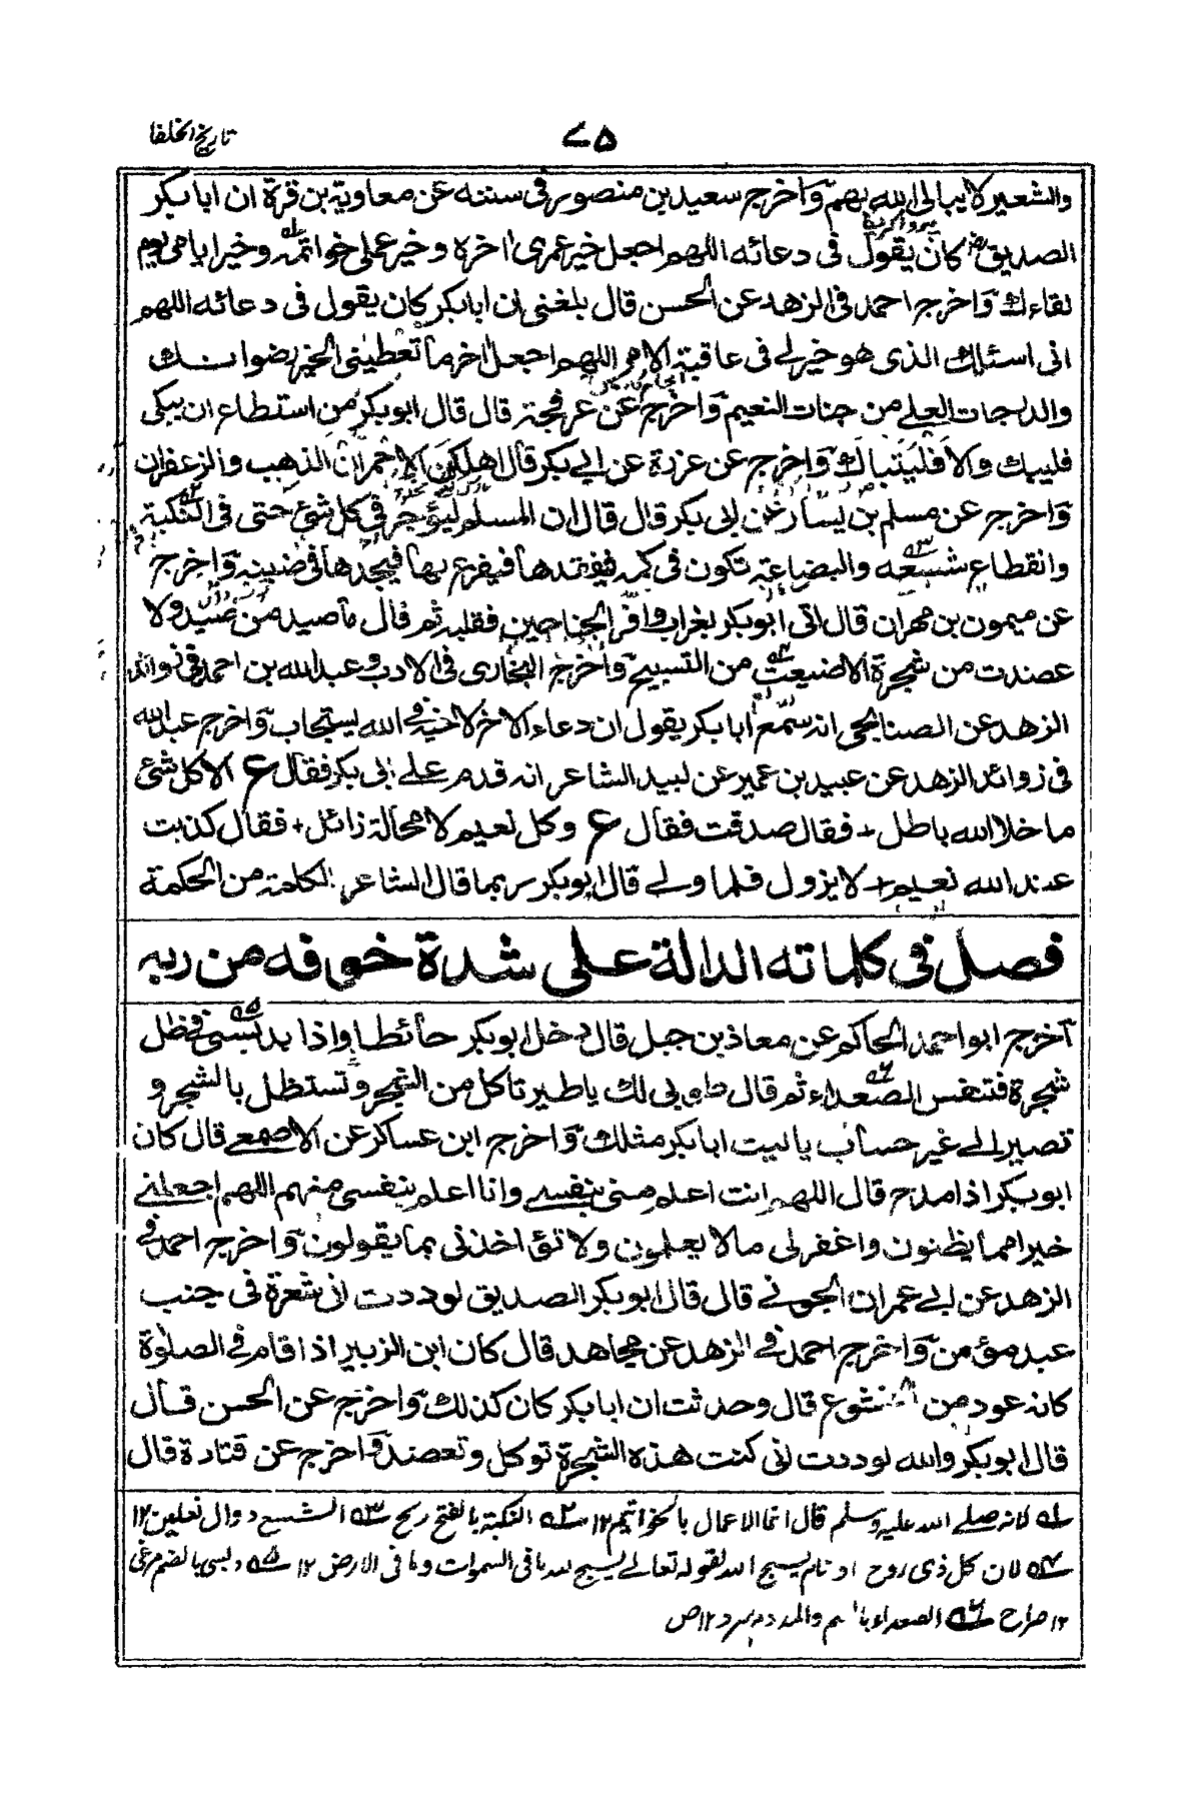 تاريخ الخلفا
٧٥
والشعير لا يبالى الله بهم وَاخرج سعيد بن منصور فى سننه عن معاوية بن قرة ان ابا بكر
الصديق كان يقول فى دعائه اللهم اجعل خير عمرى اخره وخير عملى خواتمه وخير ايامى يوم
لقاءك وَاخرج احمد فى الزهد عن الحسن قال بلغنى ان ابا بكر كان يقول فى دعائه اللهم
انى اسئلك الذى هو خير لے فى عاقبة الامر اللهم اجعل اخر ما تعطينى الخير رضوانك
والدرجات العلے من جنات النعيم وَاخرج عن عرفجة قال قال ابو بكر من استطاع ان يبكى
فليبك والا فليتباك وَاخرج عن عزرة عن ابے بكر قال اهلكهن الاحمران الذهب والزعفران
وَاخرج عن مسلم بن يسار عن ابى بكر قال قال ان المسلم ليؤجر فى كل شئ حتى فى النكبة
وانقطاع شسعه والبضاعة تكون فى كمه فيفتقدها فيفزع بها فيجدها فى ضبنه وَاخرج
عن ميمون بن مهران قال اتى ابو بكر بغراب وافر الجناحين فقلبه ثم قال ما صيد من صيد ولا
عضدت من شجرة الا ضيعت من التسبيح وَاخرج البخارى فى الادب وعبد الله بن احمد فى زوائد
الزهد عن الصنابحى انه سمع ابا بكر يقول ان دعاء الاخ لاخيه فے الله يستجاب وَاخرج عبد الله
فى زوائد الزهد عن عبيد بن عمير عن لبيد الشاعر انه قدم علے ابى بكر فقال ع الا كل شئ
ما خلا الله باطل + فقال صدقت فقال ع وكل نعيم لا محالة زائل + فقال كذبت
عند الله نعيم + لا يزول فلما ولے قال ابو بكر ربما قال الشاعر الكلمة من الحكمة
فصل فى كلماته الدالة على شدة خوفه من ربه
اَخرج ابو احمد الحاكم عن معاذ بن جبل قال دخل ابو بكر حائطا واذا بدبسى فى ظل
شجرة فتنفس الصعداء ثم قال طوبى لك يا طير تاكل من الشجر وتستظل بالشجر و
تصير الے غير حساب يا ليت ابا بكر مثلك وَاخرج ابن عساكر عن الاصمعے قال كان
ابو بكر اذا مدح قال اللهم انت اعلم منى بنفسے وانا اعلم بنفسى منهم اللهم اجعلنے
خيرا مما يظنون واغفر لى ما لا يعلمون ولا تؤاخذنى بما يقولون وَاخرج احمد فے
الزهد عن ابے عمران الجونے قال قال ابو بكر الصديق لوددت انى شعرة فى جنب
عبد مؤمن وَاخرج احمد فے الزهد عن مجاهد قال كان ابن الزبير اذا قام فى الصلوٰة
كانه عود من الخشوع قال وحدثت ان ابا بكر كان كذلك وَاخرج عن الحسن قال
قال ابو بكر والله لوددت انى كنت هذه الشجرة توكل وتعضد وَاخرج عن قتادة قال
له لانه صلے الله عليه وسلم قال انما الاعمال بالخواتيم ١٢ ٢ه النكبة بالفتح رنج ٣ه الشسع دوال نعلين ١٢
٤ه لان كل ذى روح او نام يسبح الله لقوله تعالے يسبح لله ما فى السموات وما فى الارض ١٢ ٥ه دبسى بالضم مرغى
١٢ صراح ٦ه الصعداء بالضم والمد دم سرد ١٢ ص